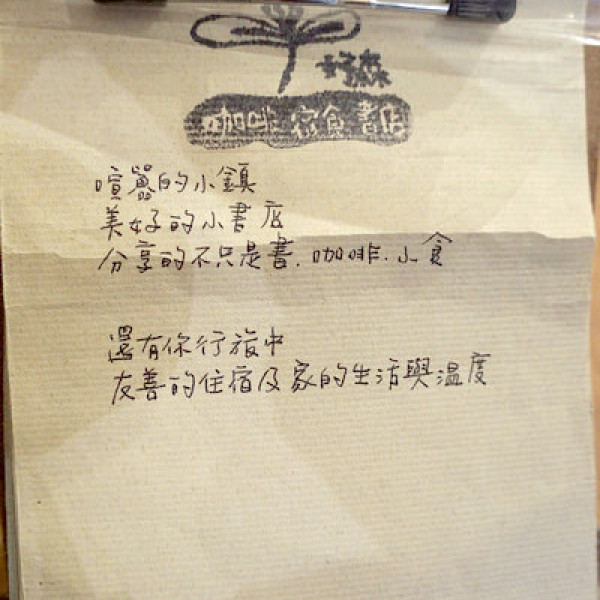 好森
咖啡 宿食 書店
喧囂的小鎮
美好的小書店
分享的不只是書、咖啡、小食
還有你行旅中
友善的住宿及家的生活與溫度